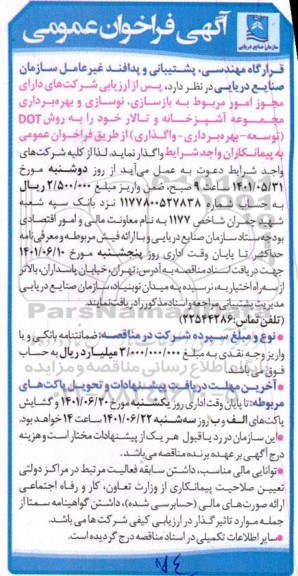 آگهی فراخوان عمومی
سازمان صنایع دریایی
قرارگاه مهندسی، پشتیبانی و پدافند غیرعامل سازمان
صنایع دریایی در نظر دارد، پس از ارزیابی شرکت‌های دارای
مجوز امور مربوط به بازسازی، نوسازی و بهره‌برداری
مجموعه آشپزخانه و تالار خود را به روش DOT
(توسعه-بهره‌برداری-واگذاری) از طریق فراخوان عمومی
به پیمانکاران واجد شرایط واگذار نماید. لذا از کلیه شرکت‌های
واجد شرایط دعوت به عمل می‌آید از روز دوشنبه مورخ
۱۴۰۱/۰۵/۳۱ ساعت ۹ صبح، ضمن واریز مبلغ ۲/۵۰۰/۰۰۰ ریال
به حساب شماره ۱۱۷۷۸۰۰۵۲۷۸۳۸ نزد بانک سپه شعبه
شهید چمران شاخص ۱۱۷۷ به نام معاونت مالی و امور اقتصادی
بودجه ستاد سازمان صنایع دریایی و با ارائه فیش مربوطه و معرفی‌نامه
حداکثر تا پایان وقت اداری روز پنجشنبه مورخ ۱۴۰۱/۰۶/۱۰
جهت دریافت اسناد مناقصه به آدرس: تهران، خیابان پاسداران، بالاتر
از سه راه اختیاریه، نرسیده به میدان نوبنیاد، سازمان صنایع دریایی
مدیریت پشتیبانی مراجعه و اسناد مذکور را دریافت نمایند.
(تلفن تماس: ۲۲۵۴۴۲۸۶)
نوع و مبلغ سپرده شرکت در مناقصه: ضمانتنامه بانکی و یا
واریز وجه نقدی به مبلغ ۳/۰۰۰/۰۰۰/۰۰۰ میلیارد ریال به حساب
فوق می‌باشد.
آخرین مهلت دریافت پیشنهادات و تحویل پاکت‌های
مربوطه: تا پایان وقت اداری روز یکشنبه مورخ ۱۴۰۱/۰۶/۲۰ و گشایش
پاکت‌های الف و ب روز سه‌شنبه ۱۴۰۱/۰۶/۲۲ ساعت ۱۴ خواهد بود.
این سازمان در رد یا قبول هر یک از پیشنهادات مختار است و هزینه
درج آگهی بر عهده برنده مناقصه می‌باشد.
توانایی مالی مناسب، داشتن سابقه فعالیت مرتبط در مراکز دولتی
تعیین صلاحیت پیمانکاری از وزارت تعاون، کار و رفاه اجتماعی
ارائه صورت‌های مالی (حسابرسی شده)، داشتن گواهینامه سمتا از
جمله موارد تاثیرگذار در ارزیابی کیفی شرکت‌ها می‌باشد.
سایر اطلاعات تکمیلی در اسناد مناقصه درج گردیده است.